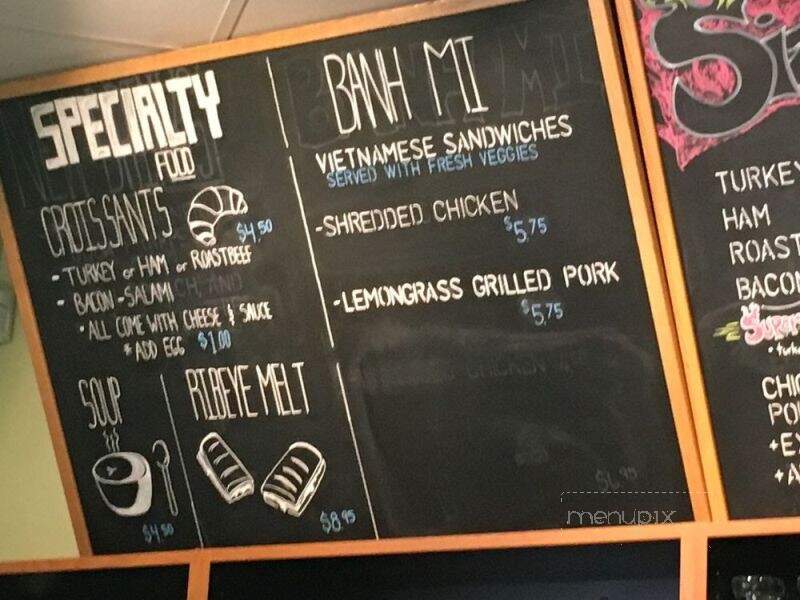 SPECIALTY
FOOD
CROISSANTS
$4.50
- TURKEY or HAM or ROASTBEEF
- BACON - SALAMI
• ALL COME WITH CHEESE & SAUCE
* ADD EGG $1.00
SOUP
$4.50
RIBEYE MELT
$8.95
BANH MI
VIETNAMESE SANDWICHES
SERVED WITH FRESH VEGGIES
-SHREDDED CHICKEN
$5.75
-LEMONGRASS GRILLED PORK
$5.75
$6.95
menupix
TURKEY
HAM
ROAST
BACON